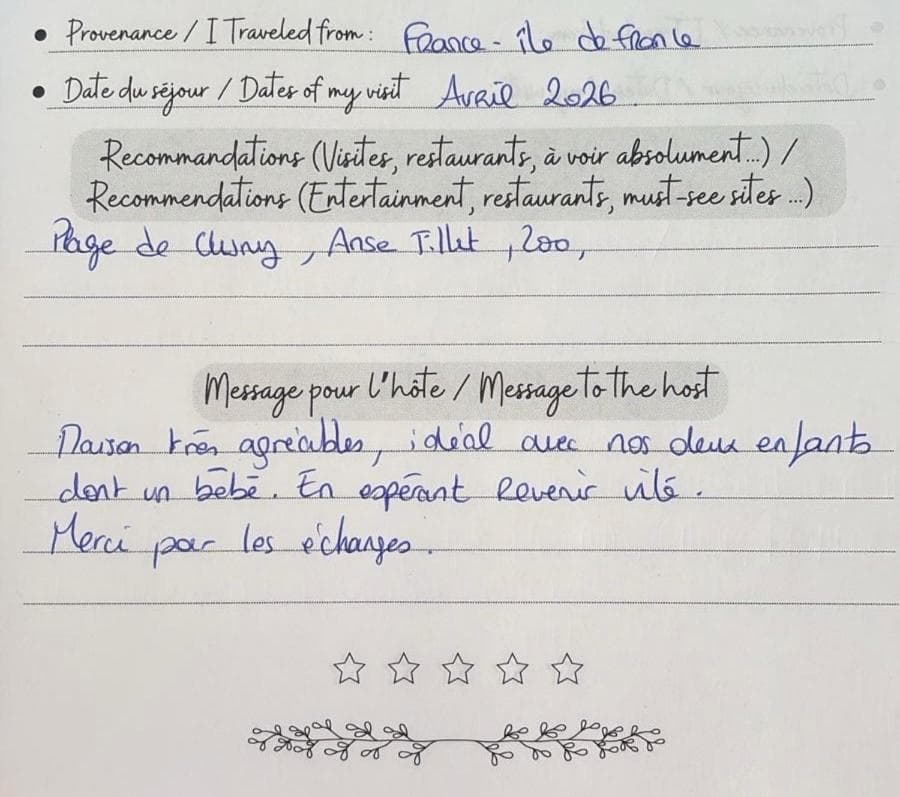 • Provenance / I Traveled from : France - île de france
• Date du séjour / Dates of my visit Avril 2026
Recommandations (Visites, restaurants, à voir absolument...) /
Recommendations (Entertainment, restaurants, must-see sites ...)
Plage de Cluny, Anse Tillet, Zoo,
Message pour l'hôte / Message to the host
Maison très agréables, idéal avec nos deux enfants
dont un bébé. En espérant revenir vite.
Merci pour les échanges.